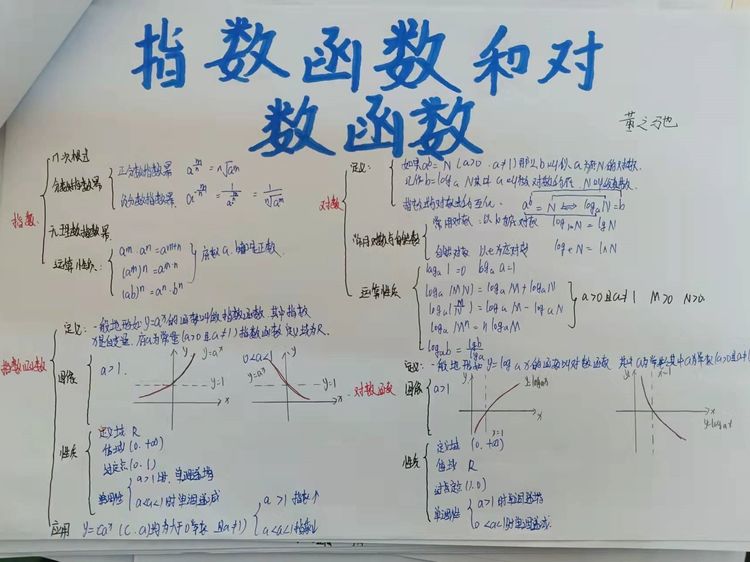 指数函数和对
数函数
指数
n次根式
分数指数幂
正分数指数幂 a^{m/n} = n√a^m
负分数指数幂 a^{-m/n} = 1/a^{m/n} = 1/n√a^m
无理数指数幂
运算性质:
a^m · a^n = a^{m+n}
(a^m)^n = a^{m·n}
(ab)^n = a^n · b^n
底数a、b都是正数
对数
定义:
如果a^b = N (a>0 a≠1) 那么b叫以a为底N的对数
记作b=log_a N 其中a叫对数的底 N叫真数
指数式与对数式的互化 a^b = N ⟺ log_a N = b
常用对数 以10为底对数 log_10 N = lg N
自然对数 以e为底对数 log e N = ln N
运算性质
log_a 1 = 0 log_a a = 1
log_a (MN) = log_a M + log_a N
log_a (M/N) = log_a M - log_a N
log_a M^n = n log_a M
log_a b = lg b / lg a
a>0且a≠1 M>0 N>0
指数函数
定义: 一般地形如y=a^x的函数叫做指数函数 其中指数
x是自变量 底a为常量(a>0且a≠1) 指数函数定义域为R
图像
a>1
y
y=a^x
y=1
x
0<a<1
y=a^x
y
y=1
x
性质
定义域 R
值域 (0,+∞)
过定点(0,1)
单调性
a>1时,单调递增
a<a<1时单调递减
应用 y=ca^x (c、a均为大于0常数 且a≠1)
a>1 指数↑
a<a<1
对数函数
定义: 一般地形如y=log_a x的函数叫对数函数
图像
a>1
y
y=log_a x
x
x=1
y
x=1
x
y=log_a x
性质
定义域 (0,+∞)
值域 R
过定点(1,0)
单调性
a>1时单调递增
0<a<1时单调递减